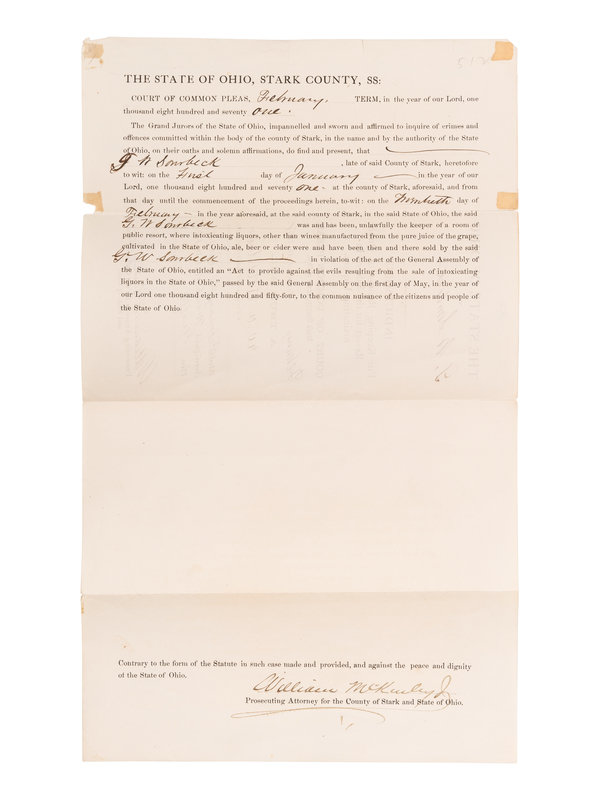 THE STATE OF OHIO, STARK COUNTY, SS:
COURT OF COMMON PLEAS, February, TERM, in the year of our Lord, one
thousand eight hundred and seventy one.
The Grand Jurors of the State of Ohio, impannelled and sworn and affirmed to inquire of crimes and
offences committed within the body of the county of Stark, in the name and by the authority of the State
of Ohio, on their oaths and solemn affirmations, do find and present, that
G W Sourbeck, late of said County of Stark, heretofore
to wit: on the First day of January in the year of our
Lord, one thousand eight hundred and seventy one at the county of Stark, aforesaid, and from
that day until the commencement of the proceedings herein, to-wit: on the day of
February in the year aforesaid, at the said county of Stark, in the said State of Ohio, the said
G. W Sourbeck was and has been, unlawfully the keeper of a room of
public resort, where intoxicating liquors, other than wines manufactured from the pure juice of the grape,
cultivated in the State of Ohio, ale, beer or cider were and have been then and there sold by the said
G. W Sourbeck in violation of the act of the General Assembly of
the State of Ohio, entitled an "Act to provide against the evils resulting from the sale of intoxicating
liquors in the State of Ohio," passed by the said General Assembly on the first day of May, in the year of
our Lord one thousand eight hundred and fifty-four, to the common nuisance of the citizens and people of
the State of Ohio.
Contrary to the form of the Statute in such case made and provided, and against the peace and dignity
of the State of Ohio.
William McKinley Jr
Prosecuting Attorney for the County of Stark and State of Ohio.